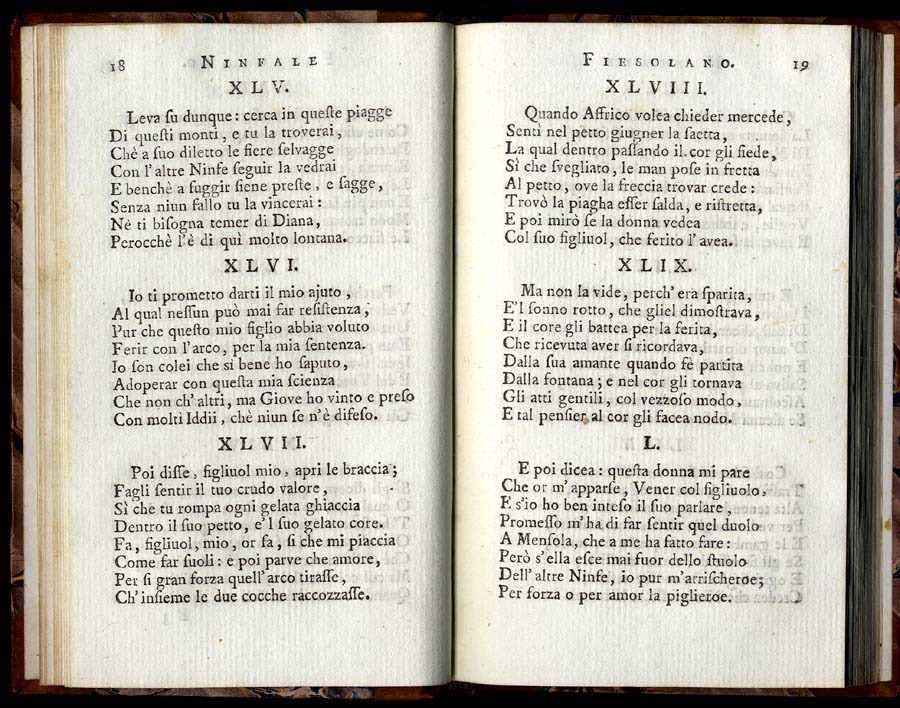 18 NINFALE
XLV.
Leva ſu dunque: cerca in queſte piagge
Di queſti monti, e tu la troverai,
Chè a ſuo diletto le fiere ſelvagge
Con l'altre Ninfe ſeguir la vedrai
E benchè a fuggir ſiene preſte, e ſagge,
Senza niun fallo tu la vincerai:
Nè ti biſogna temer di Diana,
Perocchè l'è di quì molto lontana.
XLVI.
Io ti prometto darti il mio ajuto,
Al qual neſſun può mai far reſiſtenza,
Pur che queſto mio figlio abbia voluto
Ferir con l'arco, per la mia ſentenza.
Io ſon colei che sì bene ho ſaputo,
Adoperar con queſta mia ſcienza
Che non ch'altri, ma Giove ho vinto e preſo
Con molti Iddii, chè niun ſe n'è difeſo.
XLVII.
Poi diſſe, figliuol mio, apri le braccia;
Fagli ſentir il tuo crudo valore,
Sì che tu rompa ogni gelata ghiaccia
Dentro il ſuo petto, e'l ſuo gelato core.
Fa, figliuol, mio, or fa, ſi che mi piaccia
Come far ſuoli: e poi parve che amore,
Per ſi gran forza quell'arco tiraſſe,
Ch'inſieme le due cocche raccozzaſſe.
FIESOLANO. 19
XLVIII.
Quando Affrico volea chieder mercede,
Sentì nel petto giugner la ſaetta,
La qual dentro paſſando il cor gli ſiede,
Sì che ſvegliato, le man poſe in fretta
Al petto, ove la freccia trovar crede:
Trovò la piagha eſſer ſalda, e riſtretta,
E poi mirò ſe la donna vedea
Col ſuo figliuol, che ferito l'avea.
XLIX.
Ma non la vide, perch'era ſparita,
E'l ſonno rotto, che gliel dimoſtrava,
E il core gli battea per la ferita,
Che ricevuta aver ſi ricordava,
Dalla ſua amante quando fè partita
Dalla fontana; e nel cor gli tornava
Gli atti gentili, col vezzoſo modo,
E tal penſier al cor gli facea nodo.
L.
E poi dicea: queſta donna mi pare
Che or m'apparſe, Vener col figliuolo,
E s'io ho ben inteſo il ſuo parlare,
Promeſſo m'ha di far ſentir quel duolo
A Menſola, che a me ha fatto fare:
Però s'ella eſce mai fuor dello ſtuolo
Dell'altre Ninfe, io pur m'arriſcheroe;
Per forza o per amor la piglieroe.